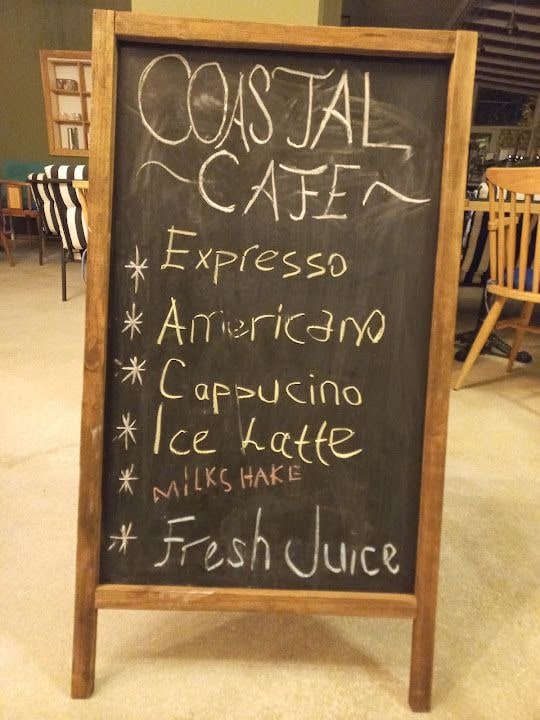 COASTAL
~ CAFE ~
* Expresso
* Americano
* Cappucino
* Ice Latte
* MILKSHAKE
* Fresh Juice